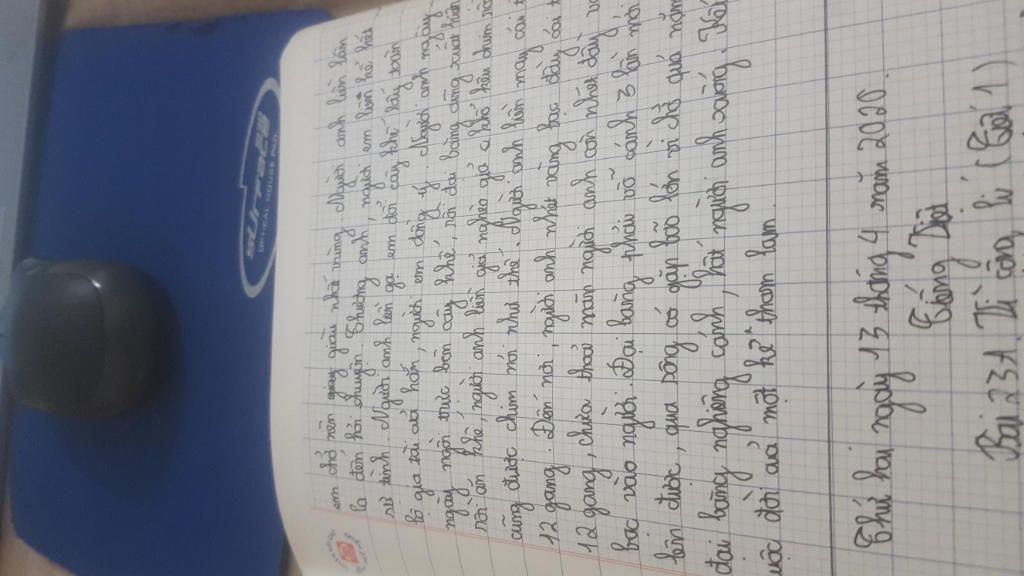 em chở nên giàu nhất vùng Người anh liền lân
la đến hỏi chuyện. Thương anh, người em liền kể hết
sự tình. Người anh liền gạ em đổi cây khế lấy toàn
bộ gia tài của hắn, người em đồng ý. Người anh ngày
ngày ngồi trực bên cây khế, rồi đại bàng cũng xuất
rồi ăn khế, người anh liền giả nghèo giả khổ kêu chim
cũng được chim nói như thế. Người anh liền may cái
12 gang. Đến nơi, người anh nhặt vàng bạc đầy cái
12 gang, chưa thoả mãn người anh còn nhét đầy
bạc vào người. Đại bàng phải vỗ cánh 3 lần mới
lên được, qua sông có gặp bão lớn vì chở quá nặng
đại bàng nghiêng cánh, hất người anh xuống. Kết
cuộc đời của một kẻ tham lam.
Thứ hai ngày 13 tháng 4 năm 2020
Tiếng Việt
Bài 23A: Vì công lí (Tiết 1)
SURFACE
OPTICAL MOUSE PAD